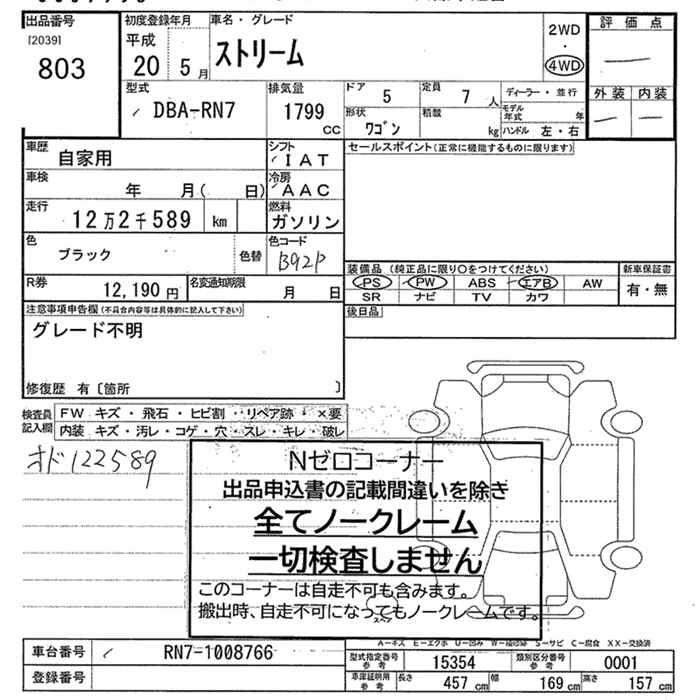 出品番号
[2039]
803
初度登録年月
平成
20 5月
車名・グレード
ストリーム
2WD
・
4WD
評価点
外装 内装
型式
DBA-RN7
排気量
1799 CC
ドア 5
定員 7人
形状 ワゴン
積載 kg
ディーラー・並行
モデル年式 年
ハンドル 左・右
車歴 自家用
シフト IAT
セールスポイント(正常に機能するものに限ります)
車検 年 月( 日)
冷房 AAC
走行 12万2千589 km
燃料 ガソリン
色 ブラック
色替
色コード B92P
装備品 (純正品に限り○をつけてください)
新車保証書
PS PW ABS エアB AW
有・無
SR ナビ TV カワ
R券 12,190円
名変通知期限 月 日
後日品
注意事項申告欄(不具合内容等は具体的に記入して下さい)
グレード不明
修復歴 有〔箇所 〕
検査員記入欄
FW キズ・飛石・ヒビ割・リペア跡・×要
内装 キズ・汚レ・コゲ・穴・スレ・キレ・破レ
オド122589
Nゼロコーナー
出品申込書の記載間違いを除き
全てノークレーム
一切検査しません
このコーナーは自走不可も含みます。
搬出時、自走不可になってもノークレームです。
A-キズ E-エクボ U-凹み W-補修跡 S-サビ C-腐食 XX-交換済
車台番号 RN7-1008766
登録番号
型式指定番号 参考 15354
類別区分番号 参考 0001
車庫証明用 参考 長さ 457cm 幅 169cm 高さ 157cm